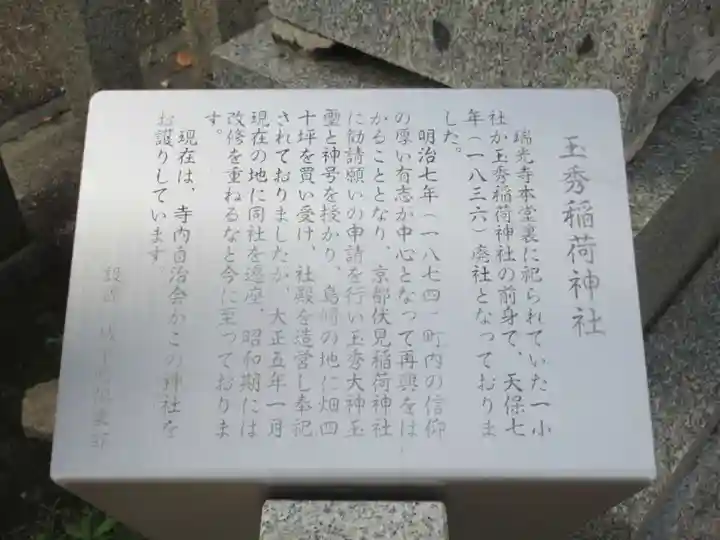 玉秀稲荷神社
瑞光寺本堂裏に祀られていた一小
社が玉秀稲荷神社の前身で、天保七
年(一八三六)廃社となっておりま
した。
明治七年(一八七四)町内の信仰
の厚い有志が中心となって再興をは
かることとなり、京都伏見稲荷神社
に勧請願いの申請を行い玉秀大神玉
璽と神号を授かり、島崎の地に畑四
十坪を買い受け、社殿を造営し奉祀
されておりましたが、大正五年一月
現在の地に同社を遷座、昭和期には
改修を重ねるなど今に至っておりま
す。
現在は、寺内自治会がこの神社を
お護りしています。